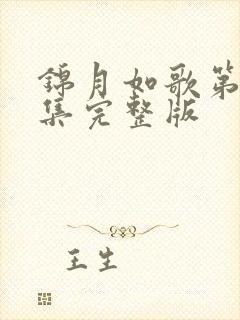 錦月如歌第
集完整版
王生